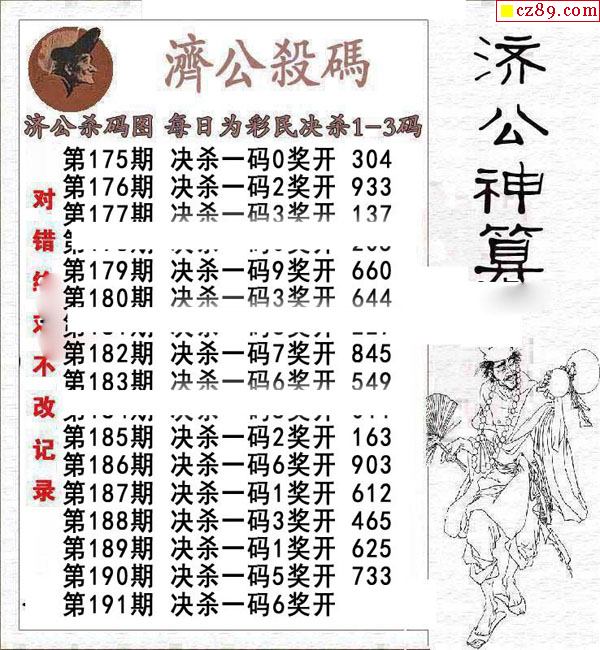 cz89.com
濟公殺碼
济公杀码图 每日为彩民决杀1-3码
第175期 决杀一码0奖开 304
第176期 决杀一码2奖开 933
第177期 决杀一码3奖开 137
第179期 决杀一码9奖开 660
第180期 决杀一码3奖开 644
第182期 决杀一码7奖开 845
第183期 决杀一码6奖开 549
第185期 决杀一码2奖开 163
第186期 决杀一码6奖开 903
第187期 决杀一码1奖开 612
第188期 决杀一码3奖开 465
第189期 决杀一码1奖开 625
第190期 决杀一码5奖开 733
第191期 决杀一码6奖开
对错 不改记录
济公神算